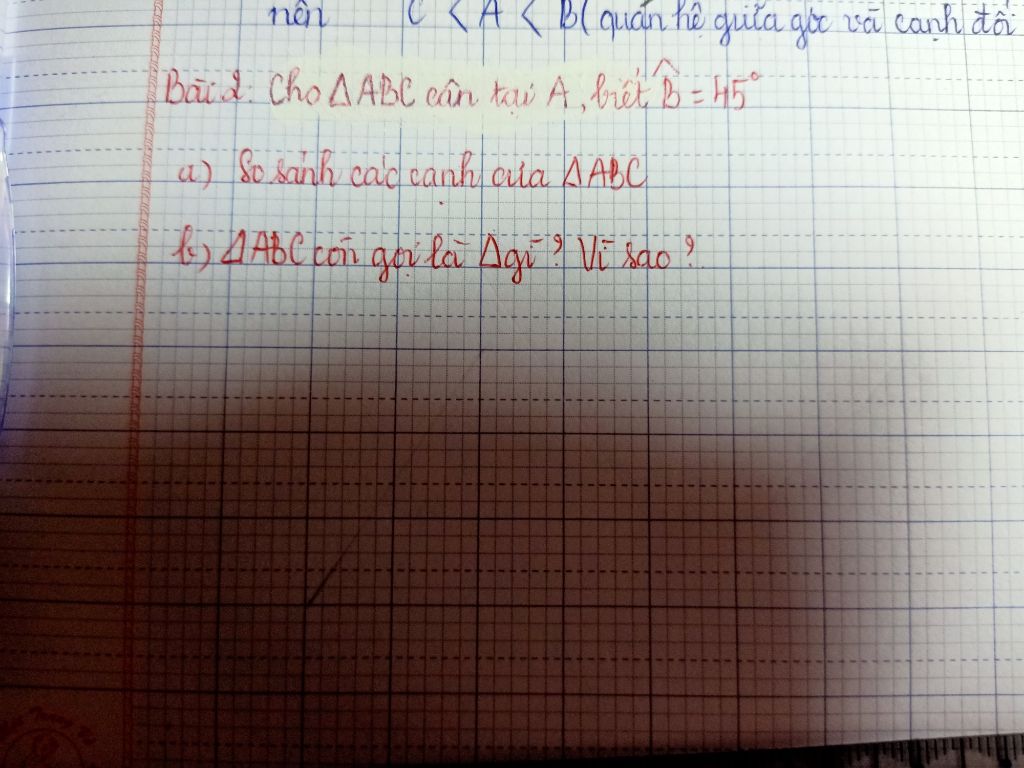 nên C < A < B ( quan hệ giữa góc và cạnh đối
Bài 2: Cho ΔABC cân tại A, biết B̂ = 45°
a) So sánh các cạnh của ΔABC
b) ΔABC còn gọi là Δgì? Vì sao?